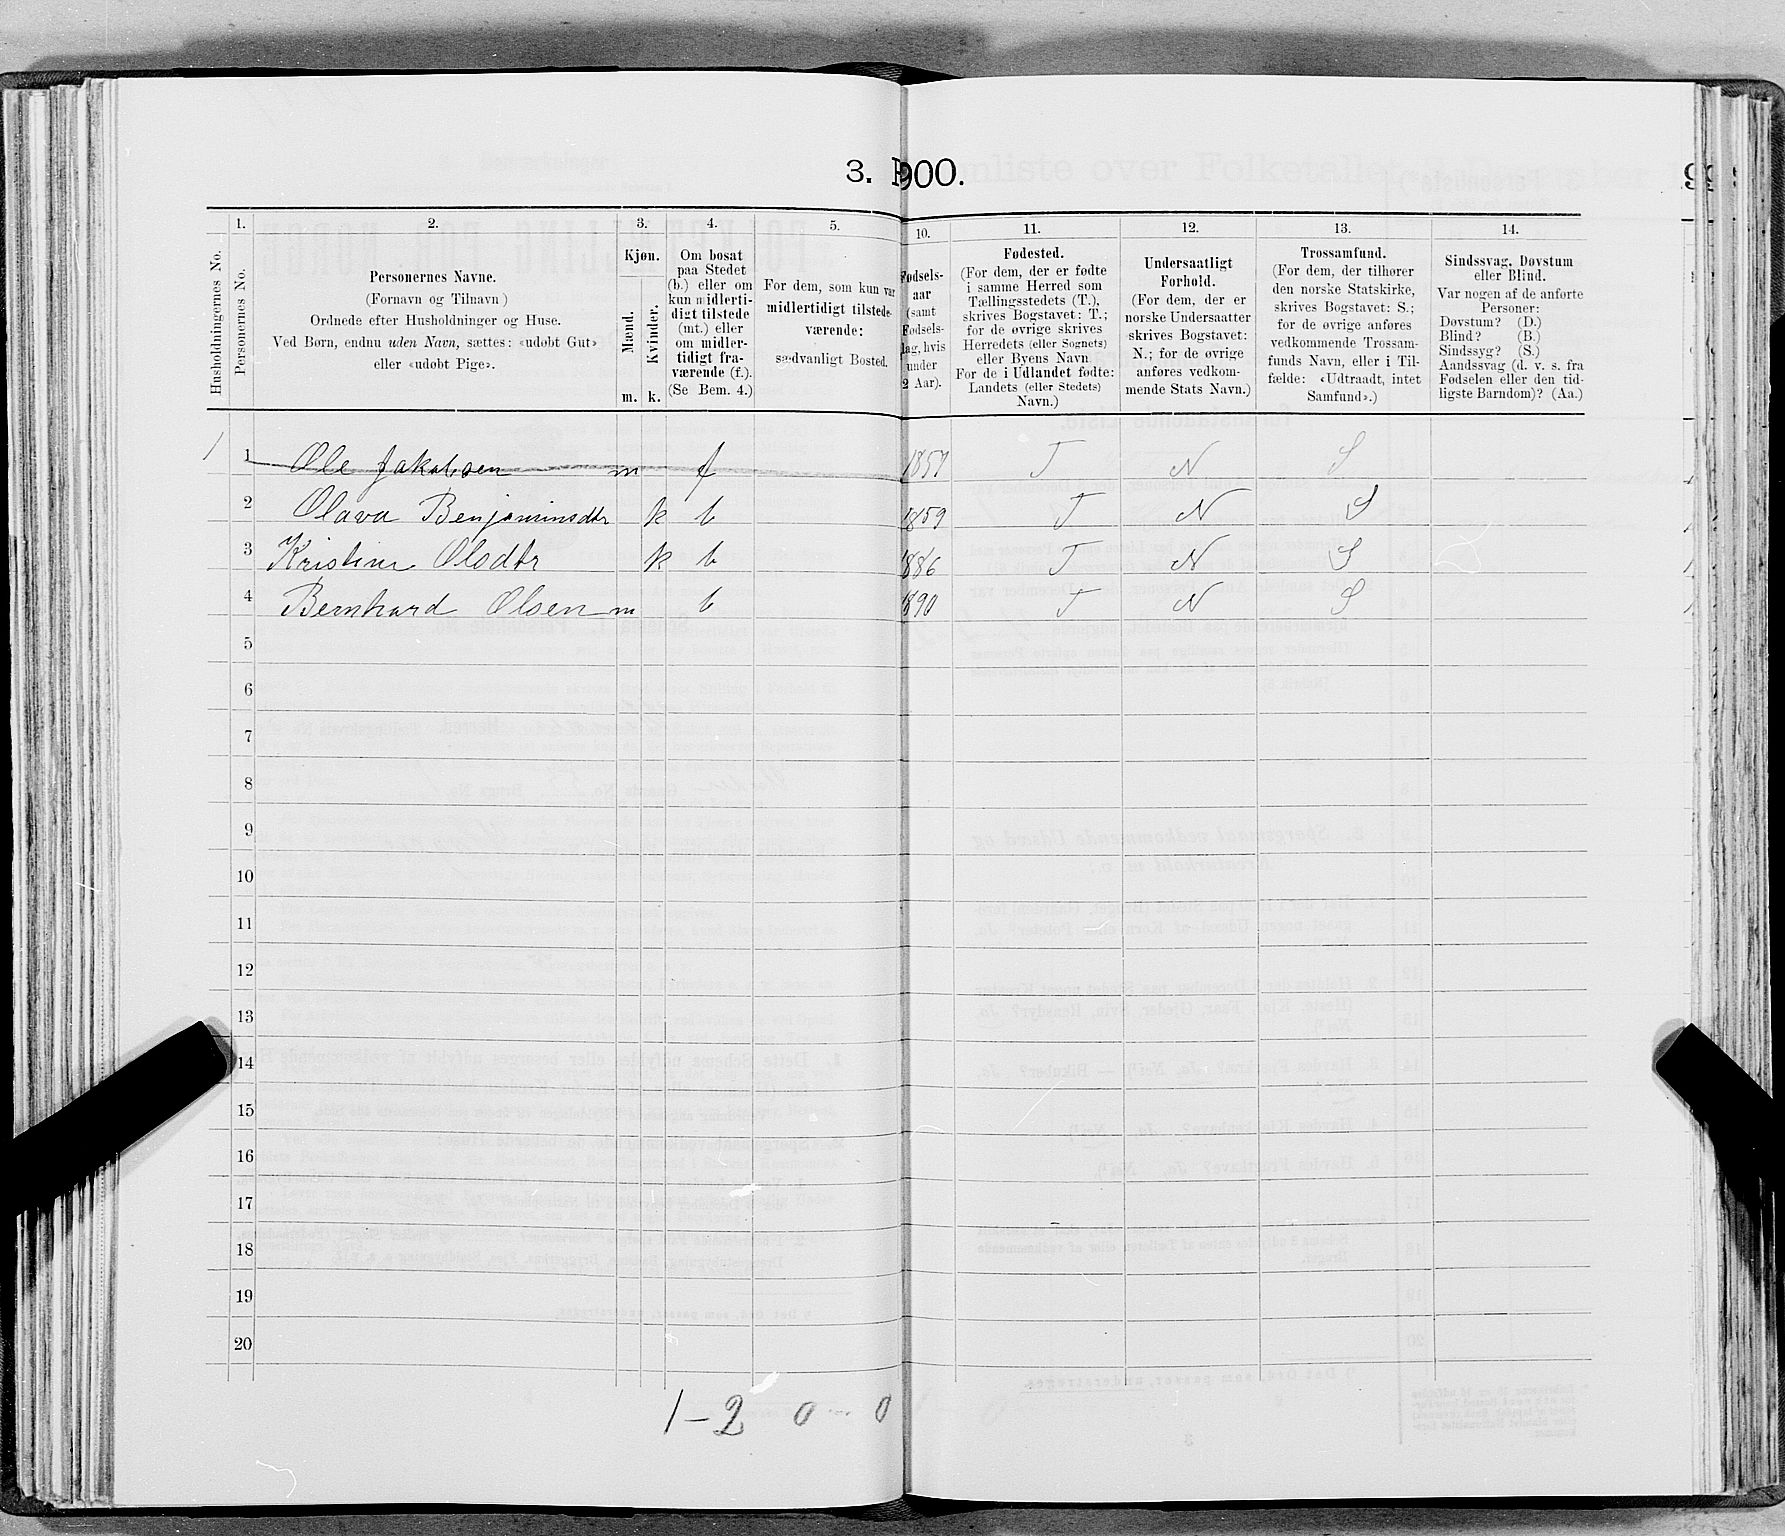 3. 900.
1. 2. 3. 4. 5. 10. 11. 12. 13. 14.
Husholdningernes No.
Personernes No.
Personernes Navne.
(Fornavn og Tilnavn)
Ordnede efter Husholdninger og Huse.
Ved Børn, endnu uden Navn, sættes: «udøbt Gut»
eller «udøbt Pige».
Kjøn.
Mænd.
Kvinder.
m. k.
Om bosat
paa Stedet
(b.) eller om
kun midlerti-
digt tilstede
(mt.) eller
om midler-
tidigt fra-
værende (f.).
(Se Bem. 4.)
For dem, som kun var
midlertidigt tilstede-
værende:
sædvanligt Bosted.
Fødsels-
aar
(samt
Fødsels-
dag, hvis
under
2 Aar).
Fødested.
(For dem, der er fødte
i samme Herred som
Tællingsstedets (T.),
skrives Bogstavet: T.;
for de øvrige skrives
Herredets (eller Sognets)
eller Byens Navn
For de i Udlandet fødte:
Landets (eller Stedets)
Navn.)
Undersaatligt
Forhold.
(For dem, der er
norske Undersaatter
skrives Bogstavet:
N.; for de øvrige
anføres vedkom-
mende Stats Navn.)
Trossamfund.
(For dem, der tilhører
den norske Statskirke,
skrives Bogstavet: S.;
for de øvrige anføres
vedkommende Trossam-
funds Navn, eller i Til-
fælde: «Udtraadt, intet
Samfund».)
Sindssvag, Døvstum
eller Blind.
Var nogen af de anførte
Personer:
Døvstum? (D.)
Blind? (B.)
Sindssyg? (S.)
Aandssvag (d. v. s. fra
Fødselen eller den tid-
ligste Barndom)? (Aa.)
1 1 Ole Jakobsen m f 1857 T N S
2 Olava Benjaminsdtr k b 1859 T N S
3 Kristine Olsdtr k b 1886 T N S
4 Bernhard Olsen m b 1890 T N S
5
6
7
8
9
10
11
12
13
14
15
16
17
18
19
20
1-2 0-0